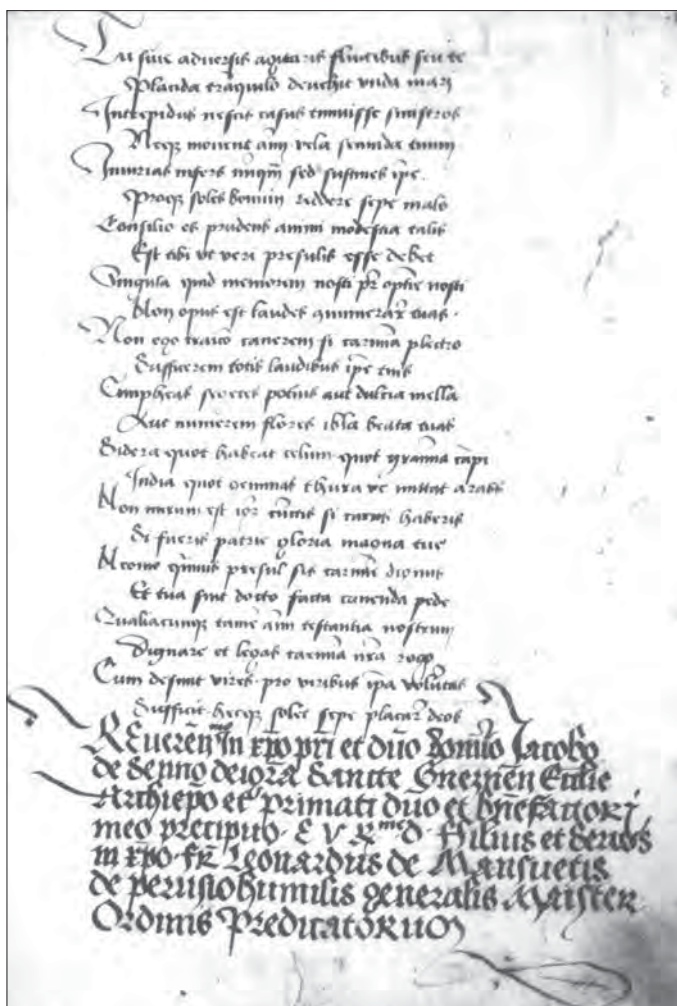 Tu sive adversis agitaris fluctibus seu te
Placida trãquilo devehit unda mari
Intrepidus nescis casus timuisse sinistros
Necq movent animũ vela secunda tuum
Iniurias infers nũqm̃ sed sustines ip̃e.
Proq soles bonum reddere sepe malo
Consilio es prudens animi modestia talis
Est tibi ut veri presulis esse debet
Singula quid memorem nosti pr̃ optie nosti
Non opus est laudes ꝯnumerar̃ tuas.
Non ego traico canerem si carmĩa plectro
Sufficerem totis laudibus ip̃e tuis
segetes potius aut dulcia mella
Aut numerem flores ibla beata tuas
Sidera quot habeat celum quot gramina cãpi
India quot gemmas thura mittat arabs
Non mirum est cũctis si carus haberis
Si fueris patrie gloria magna tue
presul sis carmĩe dignus
Et tua sint docto facta canenda pede
Qualiacunq tamẽ anĩ testantia nostrum
Dignare et legas carmĩa nr̃a rogo
Cum desint vires. pro viribus ip̃a volũtas
Sufficit. hecq solet sepe placar̃ deos
REveren^mo In xp̃o pr̃i et dño domino Jacobo
de Senno dei gr̃a Sancte Gneznen Ecclie
Archiep̃o et primati dño et bñefactori
meo precipuo. E V R^me d. filius et
in xp̃o fr̃ Leonardus de Mansuetis
de perusio humilis generalis Magister
Ordinis Predicatorum